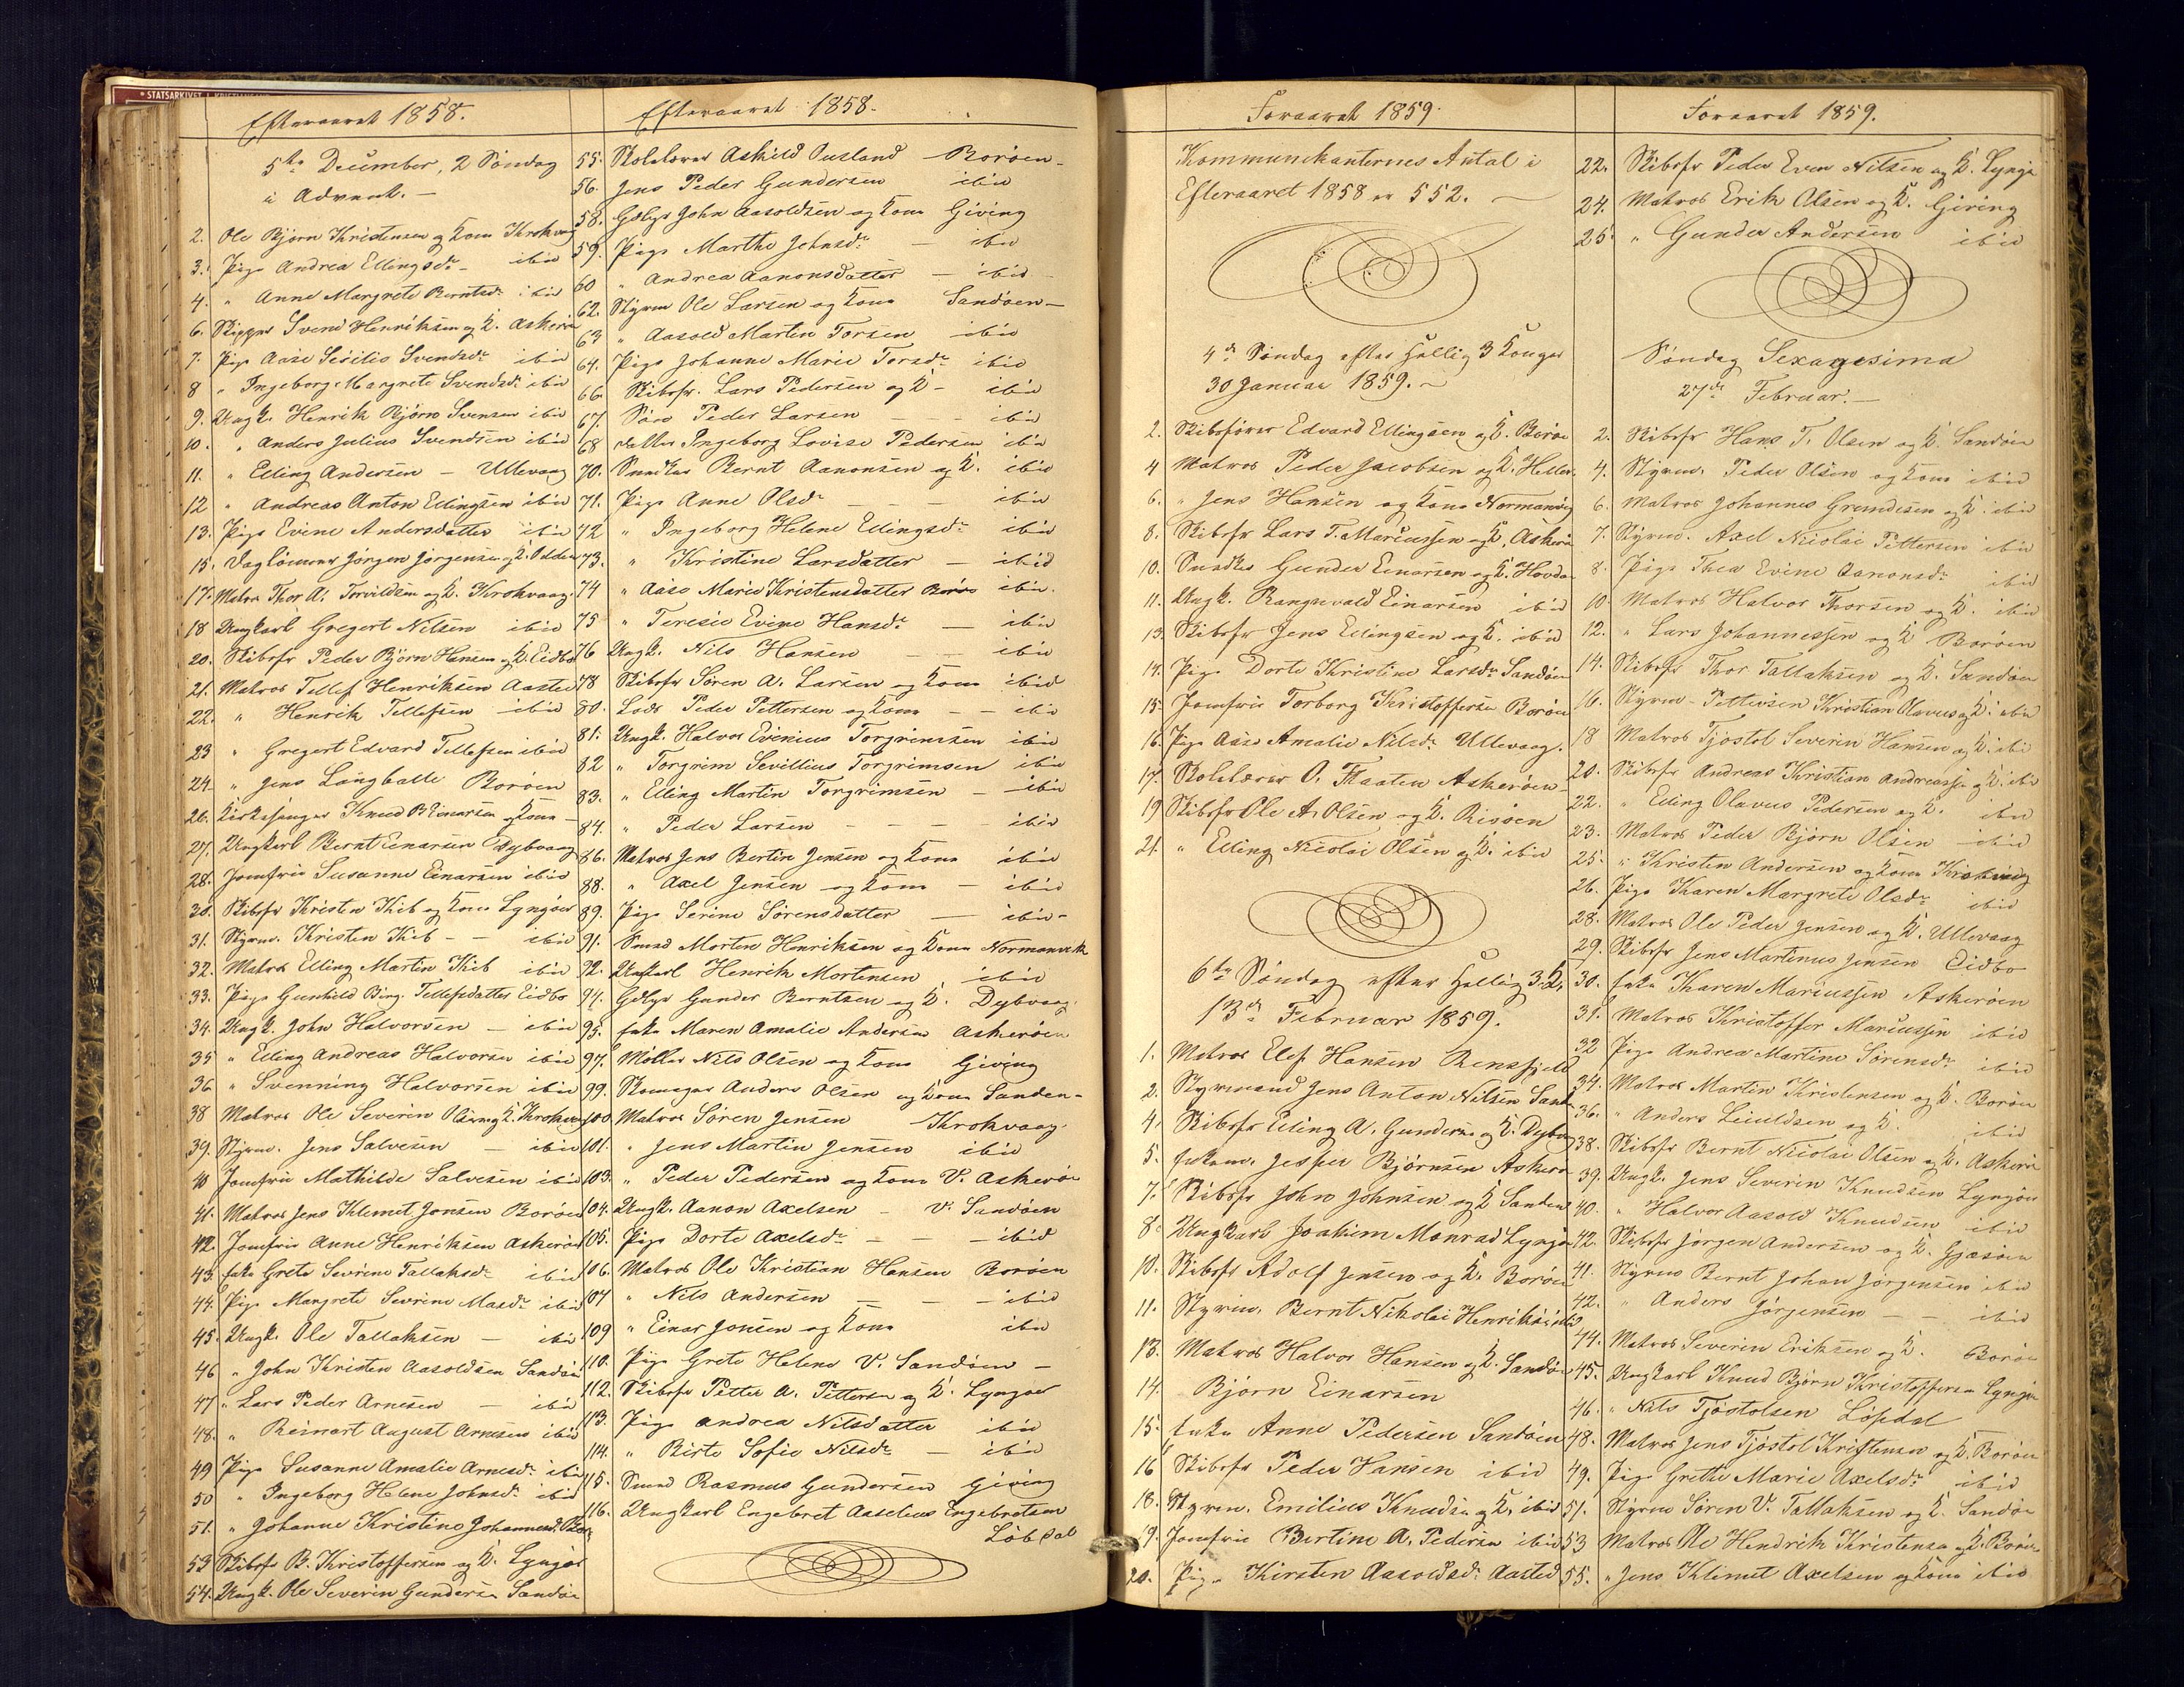 * STATSARKIVET I KRISTIANSAND
Efteraaret 1858.
5te December, 2 Söndag
i Advent. —
2. Ole Björn Kristensen og Kone Krokvaag
3. Pige Andrea Ellingsdr — ibid
4. " Anne Margrete Berntsdr ibid
6. Skipper Svend Henriksen og K. Askerö
7. Pige Aase Sisilie Svendsdr ibid
8 " Ingeborg Margrete Svendsdr ibid
9. Ungk. Henrik Björn Svensen ibid
10. " Anders Julius Svendsen ibid
11. " Elling Andersen — Ullevaag
12 " Andreas Anton Ellingsen ibid
13. Pige Evine Andersdatter ibid
15. Daglönner Jörgen Jörgensen og K.
17. Matros Thor A. Torvildsen og K. Krokvaag.
18 Ungkarl Gregert Nilsen ibid
20. Skibsfr Peder Björn Hansen og K. Eidbo
21. Matros Tellef Henriksen Aasted
22. " Henrik Tellefsen ibid
23 " Gregert Edvard Tellefsen ibid
24 " Jens Langballe Boröen
26. Kirkesanger Knud B Einarsen og Kone —
27. Ungkarl Bernt Einarsen Dybvaag
28. Jomfrue Susanne Einarsen ibid
30. Skibsfr Kristen Kib og Kone Lyngöer
31. Styrm. Kristen Kib — — ibid
32. Matros Elling Martin Kib ibid
33. Pige Gunhild Birg. Tellefsdatter Eidbo
34. Ungk. John Halvorsen — ibid
35 " Elling Andreas Halvorsen ibid
36 " Svenning Halvorsen ibid
38 Matros Ole Severin Olsen og K. Krokvaag
39. Styrm. Jens Salvesen — ibid
40 Jomfrue Mathilde Salvesen ibid
41. Matros Jens Klemet Jonsen Boröen
42. Jomfrue Anne Henriksen Askeröen
43. Enke Grete Sevrine Tallaksdr ibid
44. Pige Margrete Sevrine Masdr ibid
45. Ungk. Ole Tallaksen — ibid
46 " John Kristen Aasoldsen Sandöen
47 " Lars Peder Arnesen — ibid
48. " Reinart August Arnesen ibid
49 Pige Susanne Amalie Arnesdr ibid
50 " Ingeborg Helene Johnsdr ibid
51. " Johanne Kristine Johannesd. Bor
53 Skibsfr B. Kristoffersen og K. Lyngör
54. Ungk. Ole Severin Gunderse Sandöe
Efteraaret 1858.
55. Skolelærer Askild Ousland Boröen —
56. Jens Peder Gundersen ibid
58. Gdbgr John Aasoldsen og Kone Giving
59. Pige Marthe Johnsdr — ibid
60 " Andrea Aanonsdatter — ibid —
62. Styrm Ole Larsen og Kone Sandöen —
63 " Aasold Martin Torsen ibid
64. Pige Johanne Marie Torsdr ibid
66. Skibsfr. Lars Pedersen og K — ibid
67. Sön Peder Larsen — — ibid
68 datter Ingeborg Lovise Pedersen ibid
70. Snedker Bernt Aanonsen og K. ibid
71. Pige Anne Olsdr — — — ibid
72 " Ingeborg Helene Ellingsdr ibid
73. " Kristine Larsdatter — ibid
74 " Aase Marie Kristensdatter Borö ibid.
75 " Teresie Evine Hansdr — ibid
76 Ungk. Nils Hansen — — ibid
78 Skibsfr Sören A. Larsen og Kone ibid
80. Lods Peder Pettersen og Kone — — ibid
81. Ungk. Halvor Evenius Torgrimsen ibid
82 " Torgrim Sevillius Torgrimsen ibid
83. " Elling Martin Torgrimsen — ibid
84. " Peder Larsen — — — ibid
86. Matros Jens Bertin Jensen og Kone ibid
88. " Axel Jensen og Kone — ibid
89. Pige Serine Sörensdatter — ibid —
91. Smed Morten Henriksen og Kone Normansvik
92. Ungkarl Henrik Mortensen ibid
94. Gdbgr Gunder Berntsen og K. Dybvaag.
95. Enke Maren Amalie Andersen Askeröen
97. Möller Nils Olsen og Kone Giving
99. Skomager Anders Olsen og Kone Sanden —
100 Matros Sören Jensen Krokvaag.
101. " Jens Martin Jensen ibid
103. " Peder Pedersen og Kone V. Askeröe
104. Ungk. Aanon Axelsen — V. Sandöen
105. Pige Dorte Axelsdr — — — ibid
106. Matros Ole Kristian Hansen Boröen
107 " Nils Andersen — — — ibid
109 " Einar Jonsen og Kone ibid
110. Pige Grete Helene V. Sandöen —
112. Skibsfr Petter A. Pettersen og K. Lyngöer
113. Pige Andrea Nilsdatter ibid
114. " Birte Sofie Nilsdr — ibid
115. Smed Rasmus Gundersen Giving
116. Ungkarl Engebret Aaselius Engebretsen
Löbdal
Foraaret 1859.
Kommunikanternes Antal i
Efteraaret 1858 er 552. —
4de Söndag efter Hellig 3 Konger
30 Januar 1859. —
2. Skibsförer Edvard Ellingsen og K. Boröe
4 Matros Peder Jacobsen og K. Hellen
6. " Jens Hansen og Kone Normansvig
8. Skibsfr Lars T. Marcussen og K. Askerö
10. Snedker Gunder Einarsen og K. Hovda
11. Ungk. Rangnvald Einarsen ibid
13. Skibsfr Jens Ellingsen og K. ibid
14. Pige Dorte Kristine Larsdr Sandöen
15. Jomfrue Torborg Kristoffersen Boröen
16. Pige Aase Amalie Nilsdr Ullevaag.
17. Skolelærer O. Staalen Askeröen
19 Skibsfr Ole A. Olsen og K. Risöen
21. " Elling Nicolai Olsen og K. ibid
6te Söndag efter Hellig 3 K.
13de Februar 1859.
1. Matros Elef Hansen Rensfjeld
2. Styrmand Jens Anton Nilsen Sand
4. Skibsfr Elling A. Gunderse og K. Dybvaag
5. Jesper Björnsen Askerö
7. Skibsfr John Johnsen og K Sanden
8. Ungkarl Joakim Monrad Lyngör
10. Skibsfr Adolf Jensen og K. Boröen
11. Styrm. Bernt Nikolai Henriksen ibid
13. Matros Halvor Hansen og K. Sandöe
14. Björn Einarsen
15. Enke Anne Pedersen Sandöen
16 Skibsfr Peder Hansen ibid
18. Styrm. Emilius Knudse og K. ibid
19. Jomfrue Bertine A. Pedersen ibid
20. Pige Kirsten Aasoldsdr Aasted
Foraaret 1859.
22. Skibsfr Peder Even Nilsen og K. Lyngö
24. Matros Erik Olsen og K. Giving
25. " Gunder Andersen ibid
Söndag Sexagesima
27de Februar. —
2. Skibsfr Hans T. Olsen og K. Sandöen
4. Styrm. Peder Olsen og Kone ibid
6. Matros Johannes Grundesen og K. ibid
7. Styrm. Axel Nicolai Pettersen ibid
8. Pige Thea Evine Aanonsdr ibid
10. Matros Halvor Thorsen og K. ibid
12. " Lars Johannessen og K Boröen
14. Skibsfr Thor Tallaksen og K. Sandöen
16. Styrm — Pettersen Kristian Olavus og K. ibid
18 Matros Tjöstol Severin Hansen og K. ibi
20. Skibsfr Andreas Kristian Andreasse og K. ibi
22. " Elling Olavus Pedersen og K. ibid
23. Matros Peder Björn Olsen — ibid
25. " Kristen Andersen og Kone Krokvaag
26. Pige Karen Margrete Olsdr ibid
28. Matros Ole Peder Jensen og K. Ullevaag
29. Skibsfr Jens Martinus Jensen Eidbo
30. Enke Karen Mariussen Askeröen
31. Matros Kristoffer Marcussen ibid
32 Pige Andrea Martine Sörensdr ibid
34. Matros Martin Kristensen og K. Boröen
36. " Anders Leiuldsen og K. ibid
38. Skibsfr Bernt Nicolai Olsen og K. Askerö
39. Ungk. Jens Severin Knudsen Lyngöer
40. " Halvor Aasold Knudsen ibid
42. Skibsfr Jörgen Andersen og K. Gjæsöen
41. Styrm Bernt Johan Jörgensen ibid
42. " Anders Jörgensen — — ibid
44. Matros Severin Eriksen og K. Boröe
45. Ungkarl Knud Björn Kristoffersen Lyngör
46. " Nils Tjöstolsen Löpdal
48. Matros Jens Tjöstol Kristensen og K. Boröen
49. Pige Grethe Marie Axelsdr ibid
51. Styrm Sören V. Tallaksen og K. Sandöe
53 Matros Ole Hendrik Kristense og K. Borö
55. " Jens Klemet Axelsen og Kone ibid